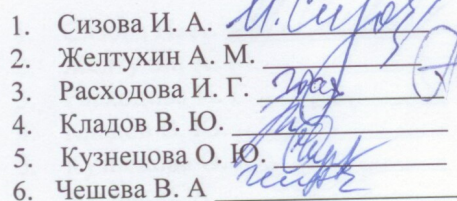 1. Сизова И. А.
2. Желтухин А. М.
3. Расходова И. Г.
4. Кладов В. Ю.
5. Кузнецова О. Ю.
6. Чешева В. А